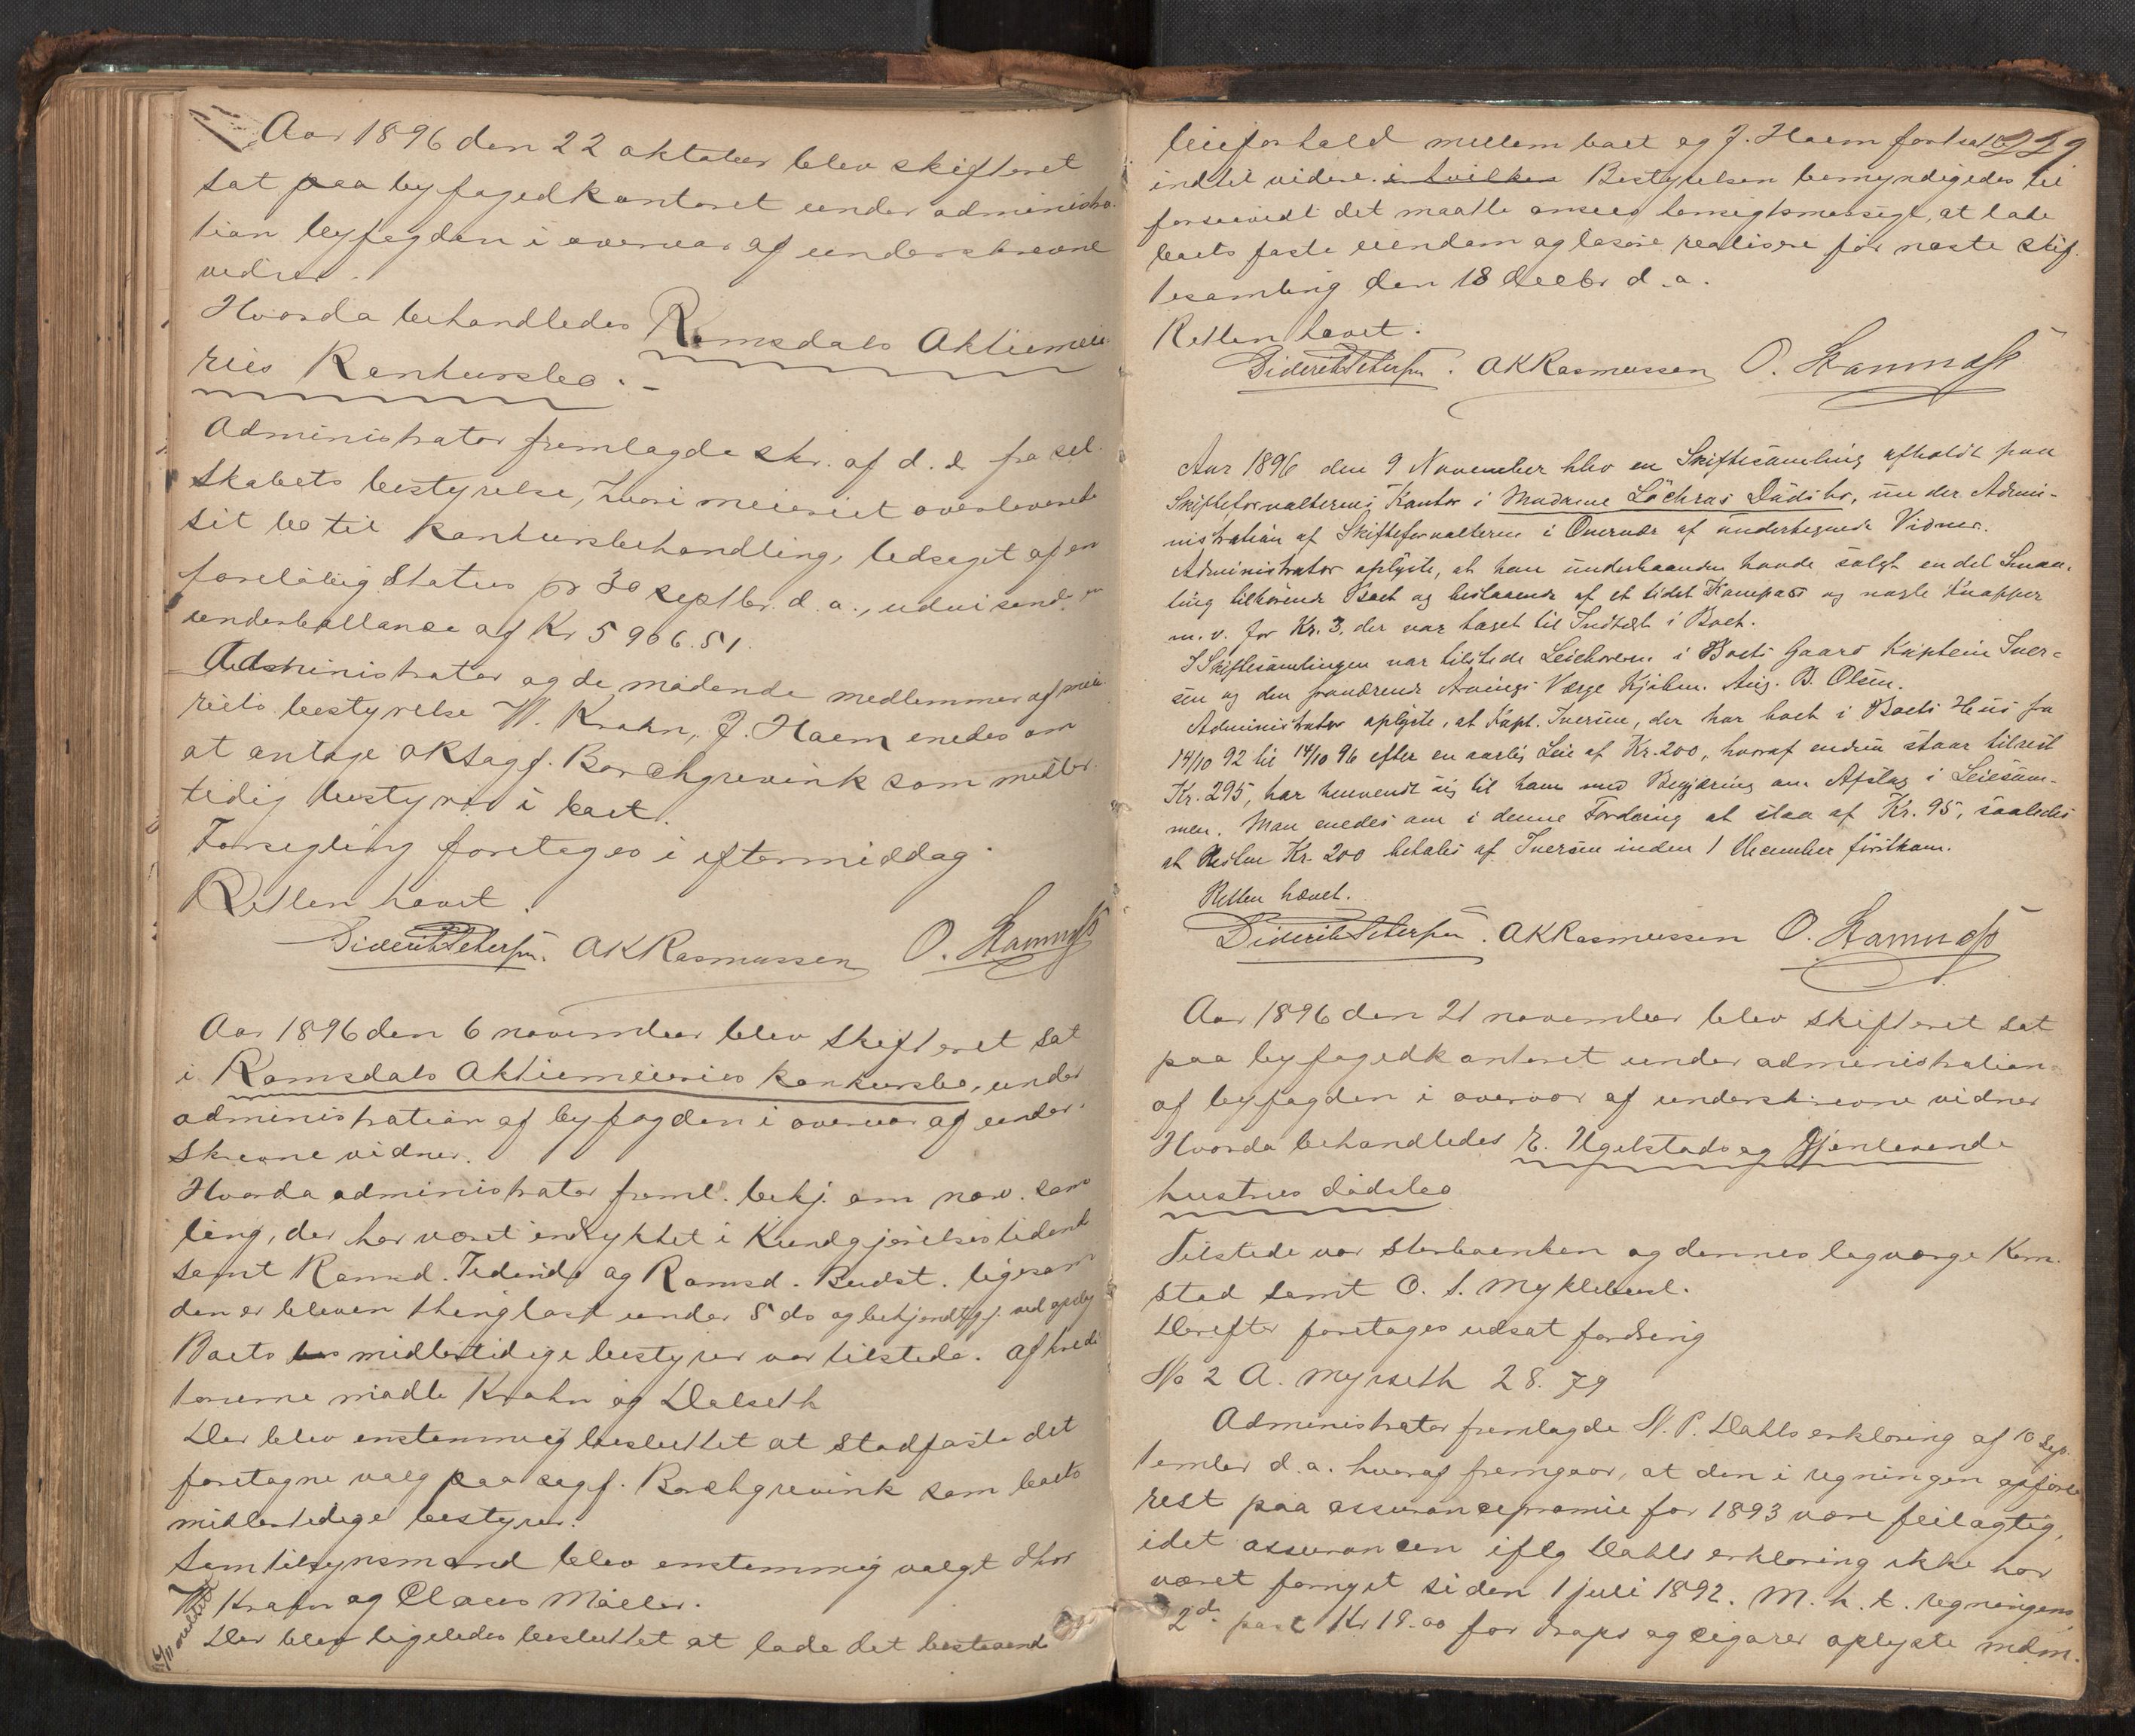 Aar 1896 den 22 oktober blev skifteret
sat paa byfogedkontoret under administra-
tion byfogden i overvær af underskrevne
vidner.
Hvorda behandledes Romsdals Aktiemeie-
ries Konkursbo. –
Administrator fremlagde skr. af d. d. fra sel-
skabets bestyrelse, hvori meieriet overleverede
sit bo til konkursbehandling, ledsaget af en
foreløbig Status pr 30 septbr. d. a., udvisende en
underballance af Kr 5906.51.
Administrator og de mødende medlemmer af meie-
riets bestyrelse W. Krohn, J. Haem enedes om
at antage oksagf. Borchgrevink som midler-
tidig bestyrer i boet.
Forsegling foretages i eftermiddag.
Retten hævet.
Diderik Petersen. AKRasmussen O. Hamnes
Aar 1896 den 6 november blev skifteret sat
i Romsdals Aktiemeieries konkursbo, under
administration af byfogden i overvær af under-
skrevne vidner.
Hvorda administrator freml. bekj. om nærv. sam-
ling, der har været indrykket i Kundgjørelsestidende
samt Romsd. Tidende og Romsd. Budst. ligesom
den er bleven thinglæst under 5 ds og bekjendtgj. ved opslag
Boets midlertidige bestyrer var tilstede. Af kredi-
torerne mødte Krohn og Dalseth
Der blev enstemmig besluttet at stadfæste det
foretagne valg paa sagf. Borchgrevink som boets
midlertidige bestyrer.
Som tilsynsmænd blev enstemmig valgt dhrr
W. Krohn og Claus Møller.
Der blev ligeledes besluttet at lade det bestaaende
leieforhold mellem boet og J. Haem fortsætte 229
indtil videre. i hvilken Bestyrelsen bemyndigedes til
forsaavidt det maatte ansees hensigtsmæssigt, at lade
boets faste eiendom og løsøre realisere før næste skif-
tesamling den 18 decbr d. a.
Retten hævet.
Diderik Petersen. AKRasmussen O. Hamnes
Aar 1896 den 9 November blev en Skiftesamling afholdt paa
Skifteforvalterens Kontor i Madame Løchras Dødsbo, under Admi-
nistration af Skifteforvalteren i Overvær af undertegnede Vidner.
Administrator oplyste, at han underhaanden havde solgt en del Smaa-
ting tilhørende Boet og bestaaende af et lidet Kompas og nogle Knapper
m. v. for Kr. 3, der var taget til Indtægt i Boet.
I Skiftesamlingen var tilstede Leieboeren i Boets Gaard Kaptein Iver-
sen og den fraværende Arvings Værge Kjøbm. Aug. B. Olsen.
Administrator oplyste, at Kapt. Iversen, der har boet i Boets Hus fra
14/10 92 til 14/10 96 efter en aarlig Leie af Kr. 200, hvoraf endnu staar tilrest
Kr. 295, har henvendt sig til ham med Begjæring om Afslag i Leiesum-
men. Man enedes om i denne Fordring at slaa af Kr. 95, saaledes
at Resten Kr. 200 betales af Iversen inden 1 December førstkom.
Retten hævet.
Diderik Petersen. AKRasmussen O. Hamnes
Aar 1896 den 21 november blev skifteret sat
paa byfogedkontoret under administration
af byfogden i overvær af underskrevne vidner
Hvorda behandledes E. Ugelstads og gjenlevende
hustrus dødsbo
Tilstede var sterboenken og dennes lagværge Kom-
stad samt O. S. Myklebust.
Derefter foretages udsat fordring
No 2 A. Myrseth 28.79
Administrator fremlagde N. P. Dahls erklæring af 10 Sep-
tember d. a. hvoraf fremgaar, at den i regningen opførte
rest paa assurancepræmie for 1893 være feilagtig,
idet assurancen iflg Dahls erklæring ikke har
været fornyet siden 1 juli 1892. M. h. t. regningens
2den post Kr 19.00 for drops og cigarer oplyste mdm.